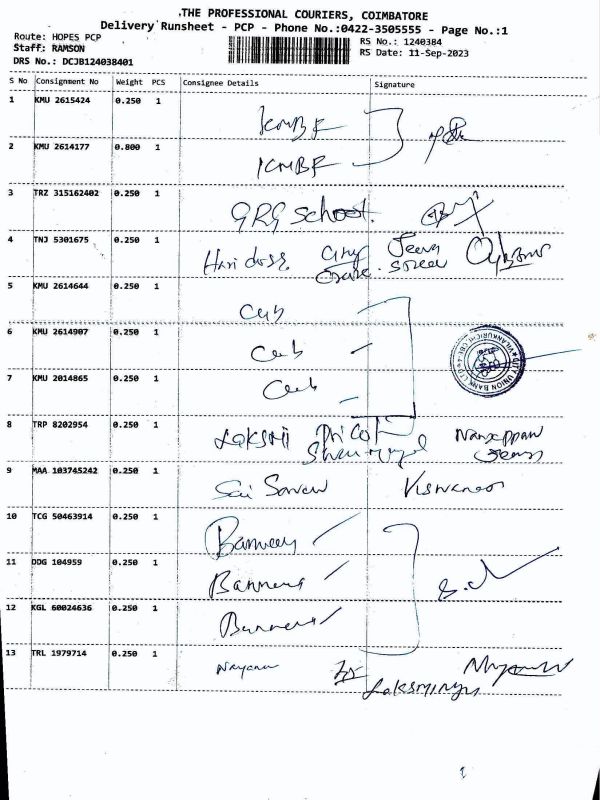 THE PROFESSIONAL COURIERS, COIMBATORE
Delivery Runsheet - PCP - Phone No.:0422-3505555 - Page No.:1
Route: HOPES PCP
RS No.: 1240384
Staff: RAMSON
RS Date: 11-Sep-2023
DRS No.: DCJB124038401
S No Consignment No Weight PCS Consignee Details Signature
1 KMU 2615424 0.250 1 KMBF
2 KMU 2614177 0.800 1 KMBF
3 TRZ 315162402 0.250 1 GRG School.
4 TNJ 5301675 0.250 1 Hari doss
5 KMU 2614644 0.250 1 Cub
6 KMU 2614907 0.250 1 Cub
7 KMU 2014865 0.250 1 Cub
CITY UNION BANK LTD
8 TRP 8202954 0.250 1 LAKSMI
9 MAA 103745242 0.250 1 Sai
10 TCG 50463914 0.250 1
11 DDG 104959 0.250 1 Banners
12 KGL 60024636 0.250 1 Banners
13 TRL 1979714 0.250 1 Nayana